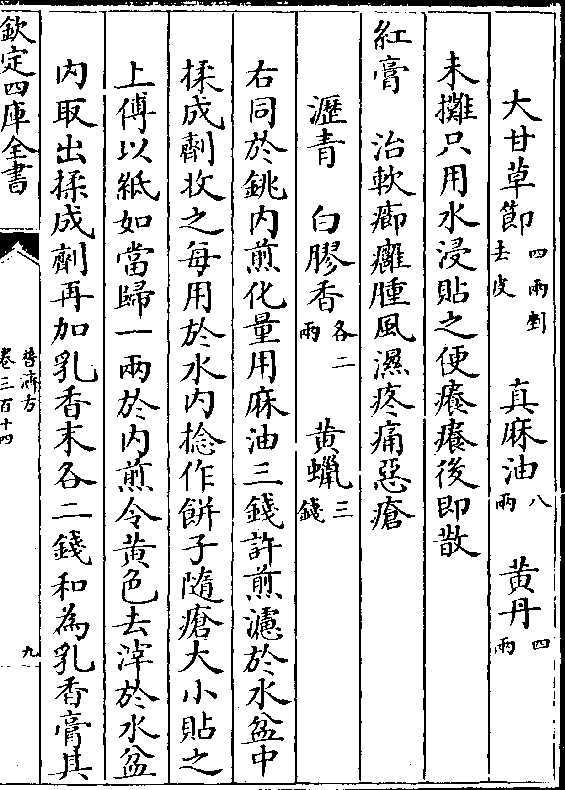 大甘草節四兩剉去皮　真麻油八兩　黄丹四兩
未攤只用水浸貼之便癢癢後即散
紅膏　治軟癤癰腫風濕疼痛惡瘡
瀝青　白膠香各二兩　黄蠟三錢
右同於銚内煎化量用麻油三錢許煎濾於水盆中
揉成劑收之每用於水内捻作餅子隨瘡大小貼之
上傅以紙如當歸一兩於内煎令黄色去滓於水盆
内取出揉成劑再加乳香末各二錢和為乳香膏其
欽定四庫全書
普濟方
卷三百十四
九